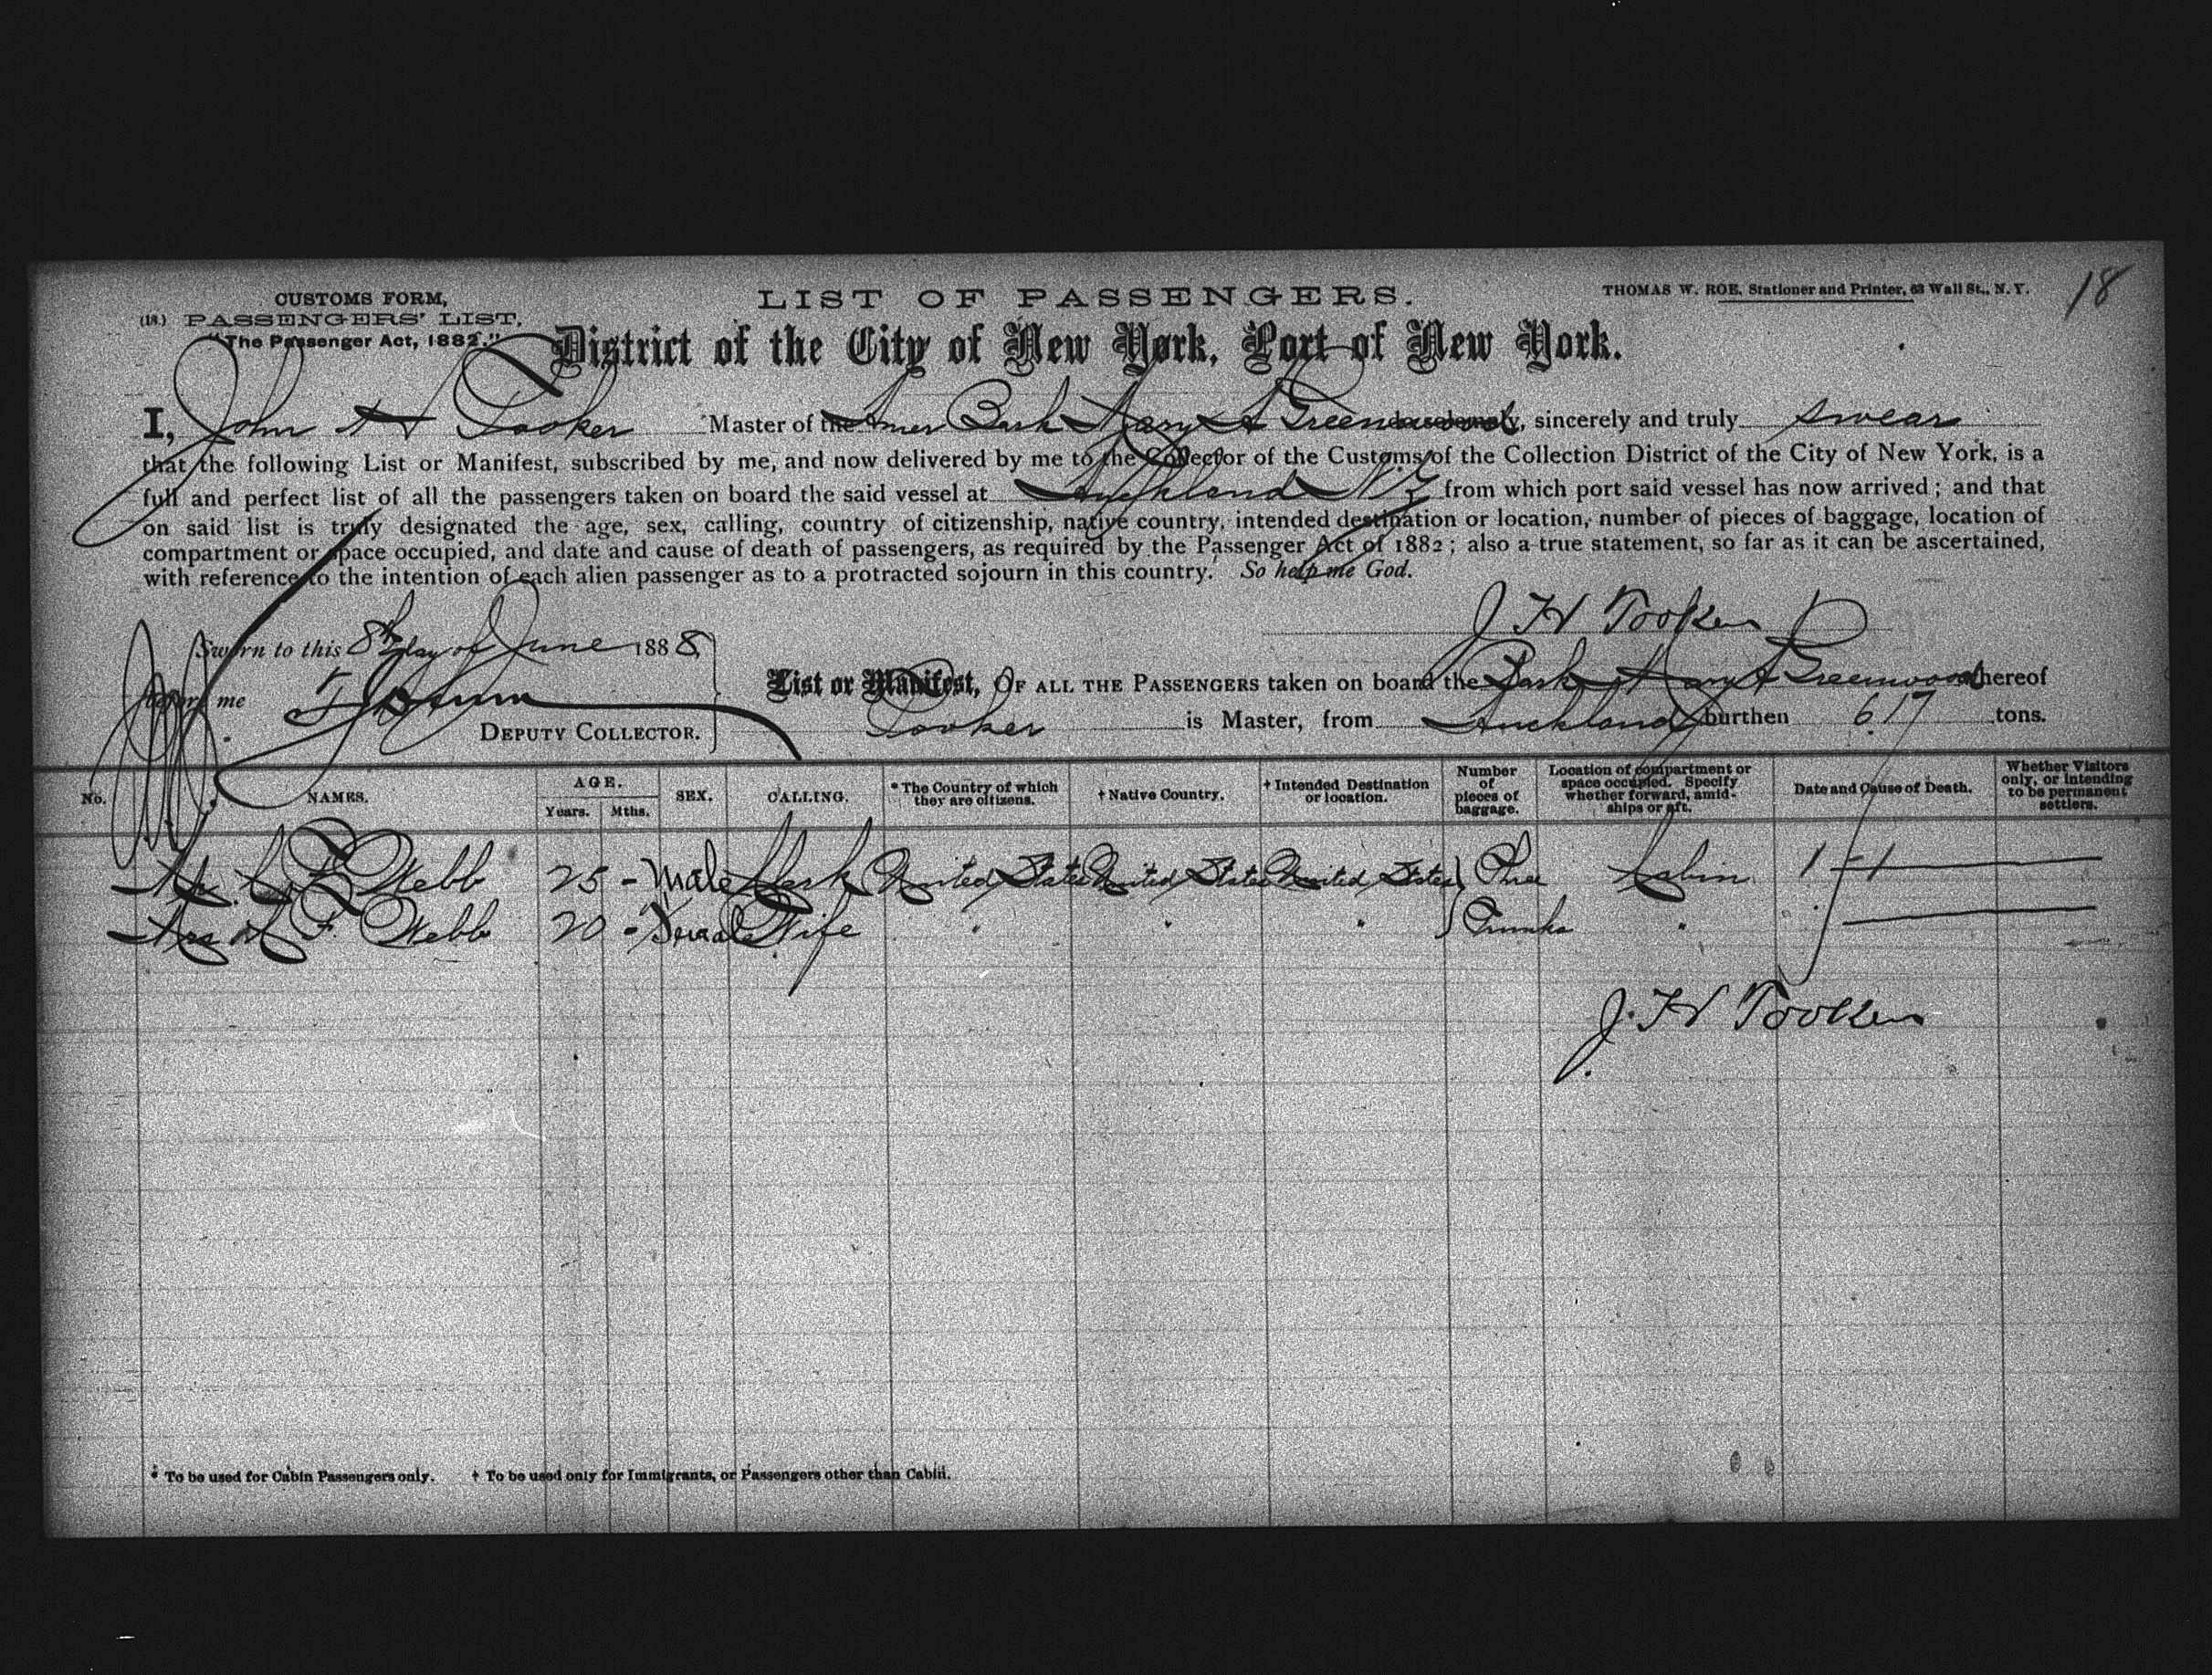 CUSTOMS FORM,
(18.) PASSENGERS' LIST,
"The Passenger Act, 1882."
LIST OF PASSENGERS.
THOMAS W. ROE, Stationer and Printer, 63 Wall St., N.Y.
18
District of the City of New York, Port of New York.
I, John H Tooker Master of the Amer Bark Mary A Greenwood, sincerely and truly swear
that the following List or Manifest, subscribed by me, and now delivered by me to the Collector of the Customs of the Collection District of the City of New York, is a
full and perfect list of all the passengers taken on board the said vessel at Auckland N Z from which port said vessel has now arrived; and that
on said list is truly designated the age, sex, calling, country of citizenship, native country, intended destination or location, number of pieces of baggage, location of
compartment or space occupied, and date and cause of death of passengers, as required by the Passenger Act of 1882; also a true statement, so far as it can be ascertained,
with reference to the intention of each alien passenger as to a protracted sojourn in this country. So help me God.
J H Tooker
Sworn to this 8th day of June 1888,
before me
DEPUTY COLLECTOR.
List or Manifest, OF ALL THE PASSENGERS taken on board the Bark Mary A Greenwood whereof
Tooker is Master, from Auckland burthen 617 tons.
No. NAMES. AGE. Years. Mths. SEX. CALLING. * The Country of which they are citizens. † Native Country. † Intended Destination or location. Number of pieces of baggage. Location of compartment or space occupied. Specify whether forward, amidships or aft. Date and Cause of Death. Whether Visitors only, or intending to be permanent settlers.
Mr. F Webb 25 - Male Clerk United States United States United States } Three Cabin
Mrs F. Webb 20 - Female Wife " " " } Trunks "
J. H Tooker
* To be used for Cabin Passengers only. † To be used only for Immigrants, or Passengers other than Cabin.